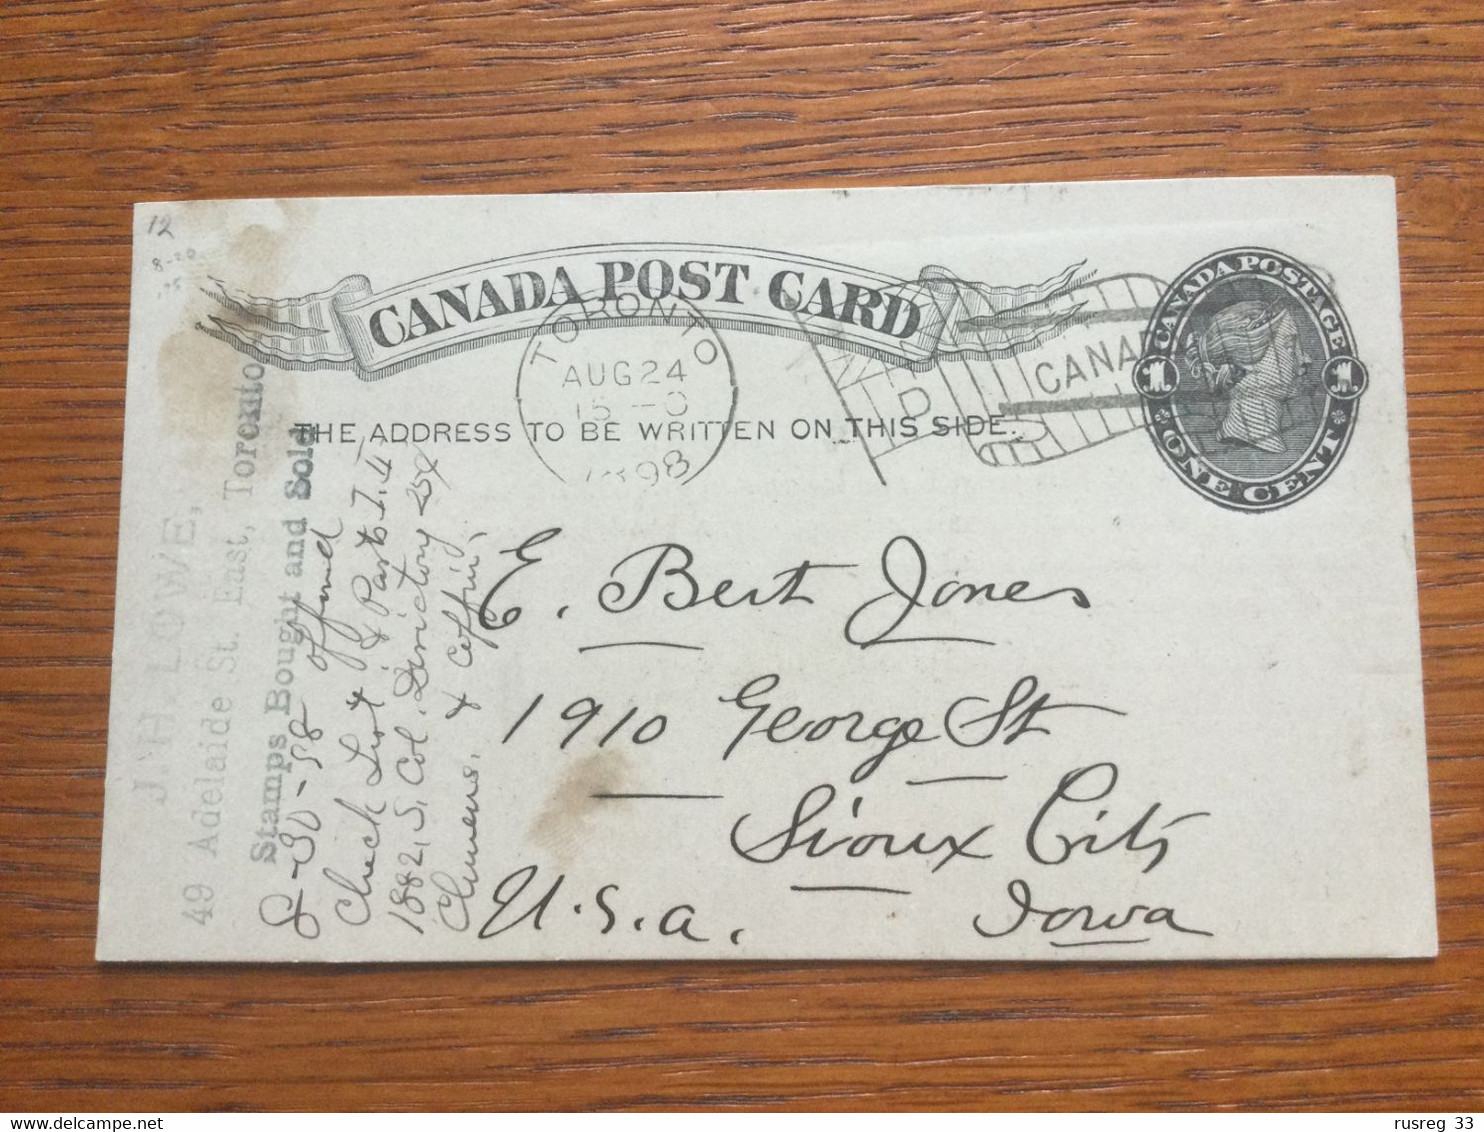 12
8-20
CANADA POST CARD
TORONTO
AUG 24
15 - 0
98
CANADA
CANADA POSTAGE
1 1
ONE CENT
THE ADDRESS TO BE WRITTEN ON THIS SIDE.
J. H. LOWE,
49 Adelaide St. East, Toronto
Stamps Bought and Sold
8-30-98 offered
Check List & Parts I, II
1882, S. Col. Directory 25¢
Clemens, & Coffin,
E. Bert Jones
1910 George St
Sioux City
U.S.a. Iowa
rusreg 33